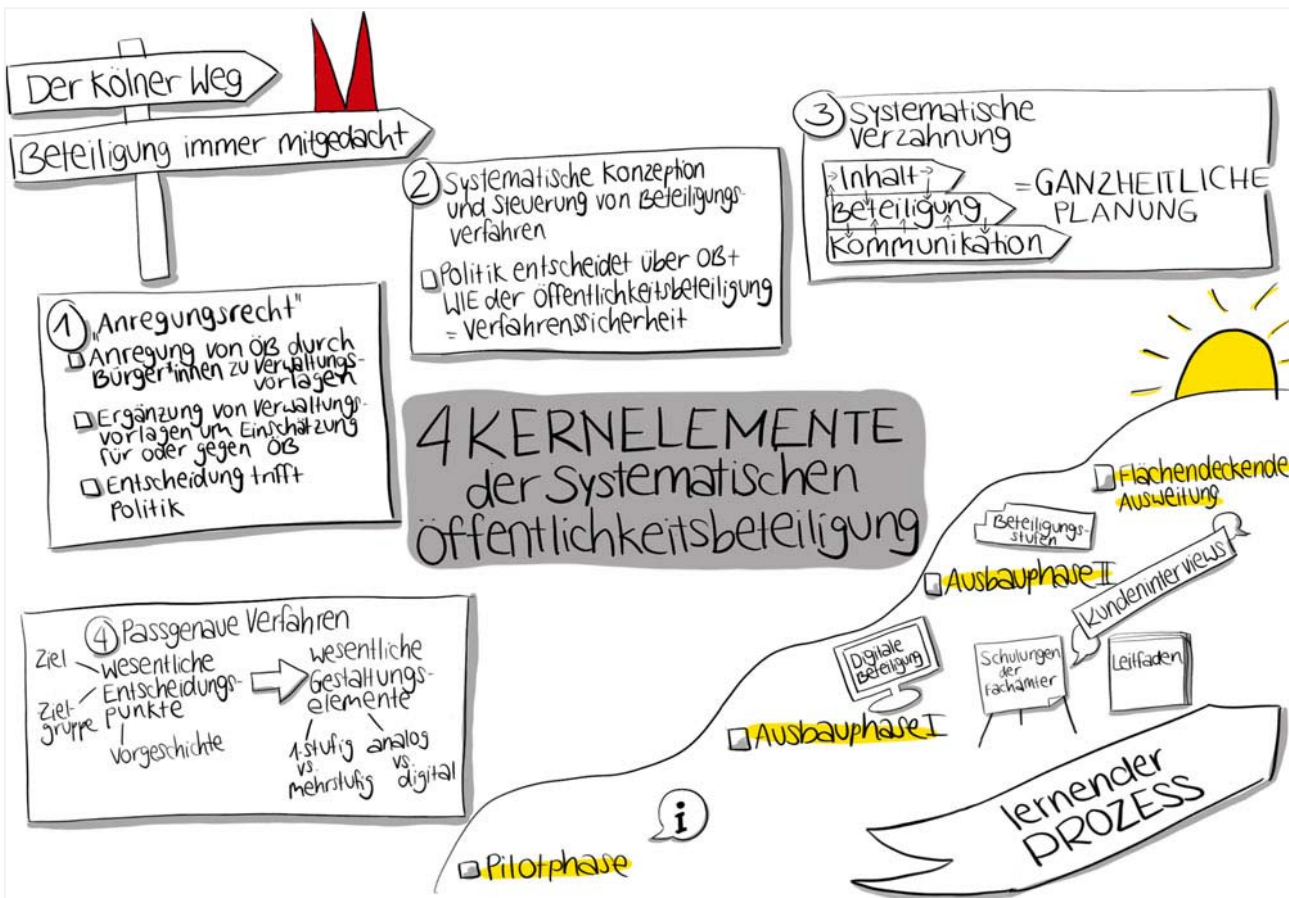 Der Kölner Weg
Beteiligung immer mitgedacht
1 "Anregungsrecht"
Anregung von ÖB durch
Bürger*innen zu Verwaltungs-
vorlagen
Ergänzung von Verwaltungs-
vorlagen um Einschätzung
für oder gegen ÖB
Entscheidung trifft
Politik
2 Systematische Konzeption
und Steuerung von Beteiligungs-
verfahren
Politik entscheidet über OB+
WIE der Öffentlichkeitsbeteiligung
= Verfahrenssicherheit
3 Systematische
Verzahnung
Inhalt
Beteiligung
Kommunikation
= GANZHEITLICHE
PLANUNG
4 KERNELEMENTE
der Systematischen
Öffentlichkeitsbeteiligung
4 Passgenaue Verfahren
Ziel
Ziel-
gruppe
wesentliche
Entscheidungs-
punkte
Vorgeschichte
wesentliche
Gestaltungs-
elemente
1-stufig
vs.
mehrstufig
analog
vs.
digital
Flächendeckende
Ausweitung
Beteiligungs-
stufen
Ausbauphase II
Kundeninterviews
Digitale
Beteiligung
Schulungen
der
Fachämter
Leitfaden
Ausbauphase I
i
Pilotphase
lernender
PROZESS